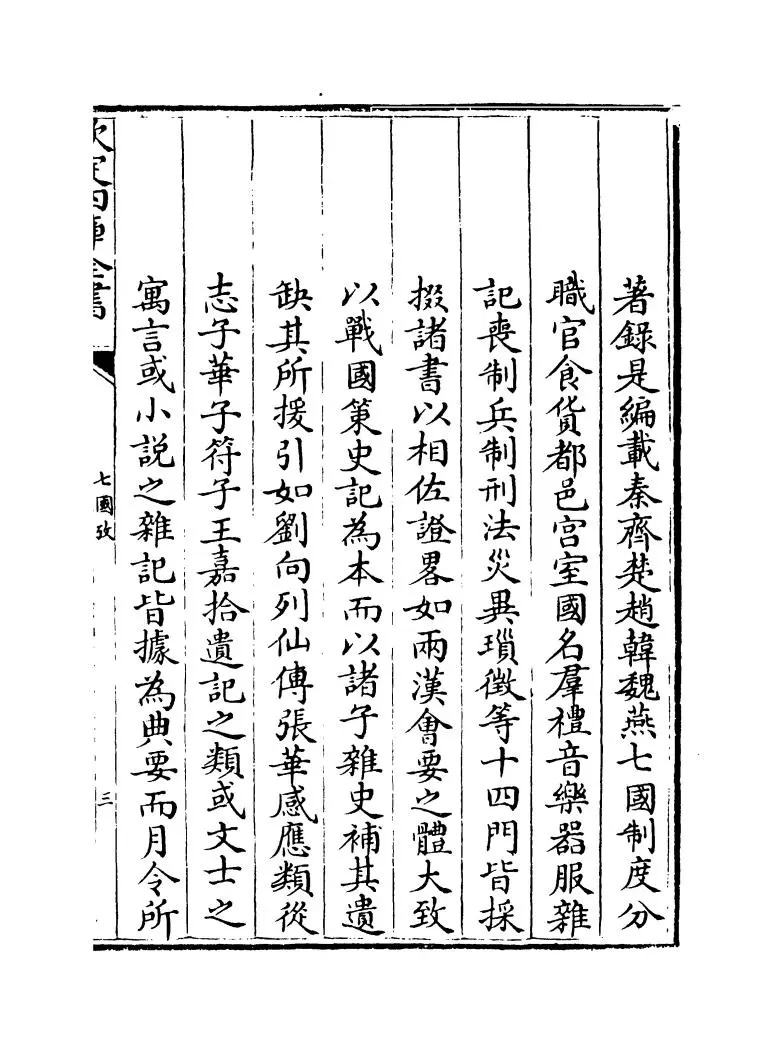 著錄是編載秦齊楚趙韓魏燕七國制度分
職官食貨都邑宫室國名羣禮音樂器服雜
記喪制兵制刑法災異瑣徴等十四門皆採
掇諸書以相佐證畧如兩漢會要之體大致
以戰國策史記為本而以諸子雜史補其遺
缺其所援引如劉向列仙傳張華感應類從
志子華子符子王嘉拾遺記之類或文士之
寓言或小説之雜記皆據為典要而月令所
欽定四庫全書
七國攷
三